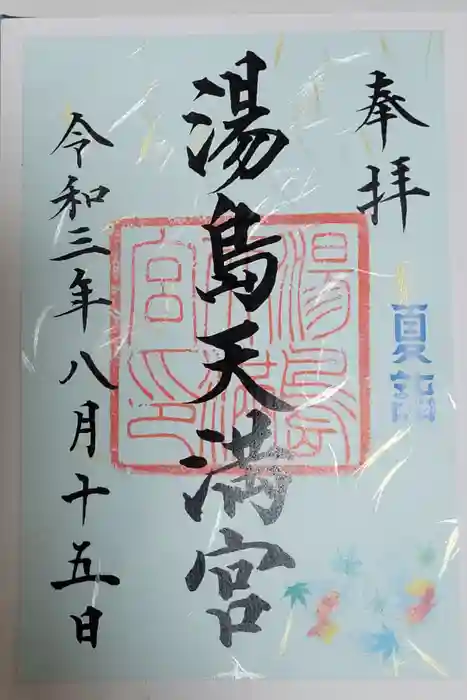 奉拝
夏詣
湯島天満宮
湯島天満宮印
令和三年八月十五日